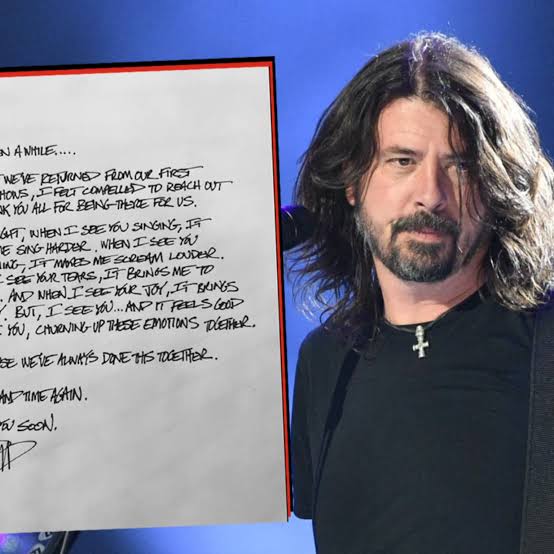 N A WHILE.....
WE'VE RETURNED FROM OUR FIRST
I FELT COMPELLED TO REACH OUT
K YOU ALL FOR BEING THERE FOR US.
GHT, WHEN I SEE YOU SINGING, IT
SING HARDER. WHEN I SEE YOU
NG, IT MAKES ME SCREAM LOUDER.
SEE YOUR TEARS, IT BRINGS ME TO
. AND WHEN I SEE YOUR JOY, IT BRINGS
Y. BUT, I SEE YOU...AND IT FEELS GOOD
YOU, CHURNING UP THESE EMOTIONS TOGETHER.
SE WE'VE ALWAYS DONE THIS TOGETHER.
AND TIME AGAIN.
SOON.